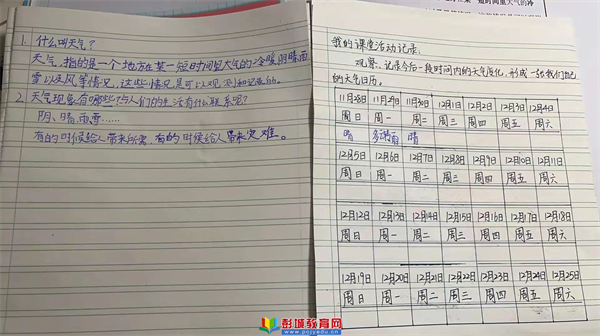 1. 什么叫天气?
天气,指的是一个地方在某一短时间里大气的冷暖、阴晴、雨
雪以及风等情况,这些情况是可以观测和记录的。
2. 天气现象有哪些?与人们的生活有什么联系呢?
阴、晴、雨、雪……
有的时候给人带来所需,有的时候给人带来灾难。
短时间里大气的冷
我的课堂活动记录:
观察、记录今后一段时间内的天气变化,形成一张我们自己
的天气日历。
11月28日 11月29日 11月30日 12月1日 12月2日 12月3日 12月4日
周日 周一 周二 周三 周四 周五 周六
晴 多云 晴
12月5日 12月6日 12月7日 12月8日 12月9日 12月10日 12月11日
周日 周一 周二 周三 周四 周五 周六
12月12日 12月13日 12月14日 12月15日 12月16日 12月17日 12月18日
周日 周一 周二 周三 周四 周五 周六
12月19日 12月20日 12月21日 12月22日 12月23日 12月24日 12月25日
周日 周一 周二 周三 周四 周五 周六
彭城教育网
www.pcjyedu.cn